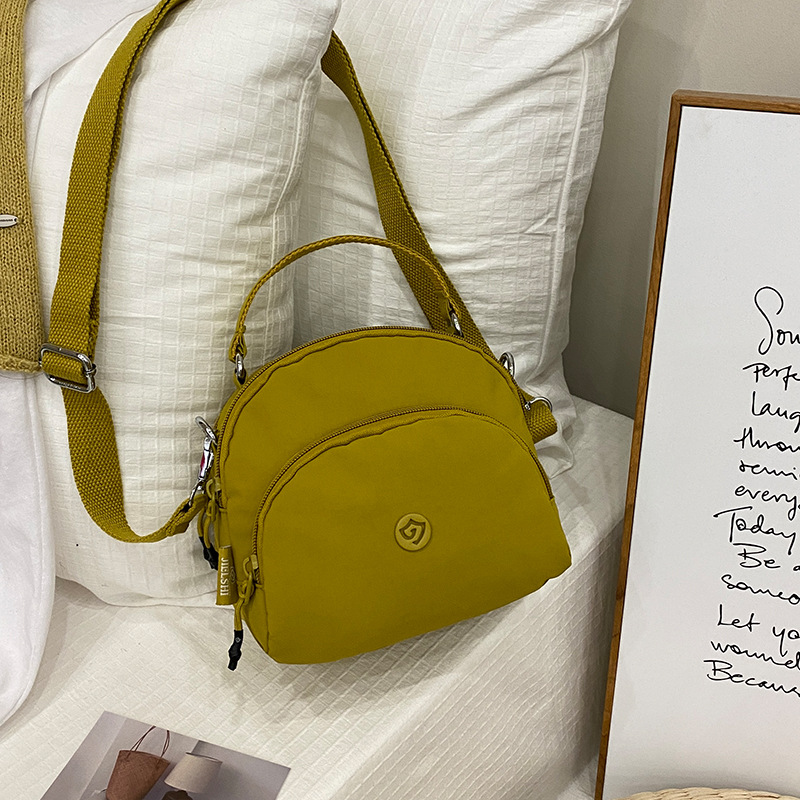 JIELSHI
Som
perfe
laug
throu
remi
every
Today
Be a
someo
Let yo
wound
Becaus